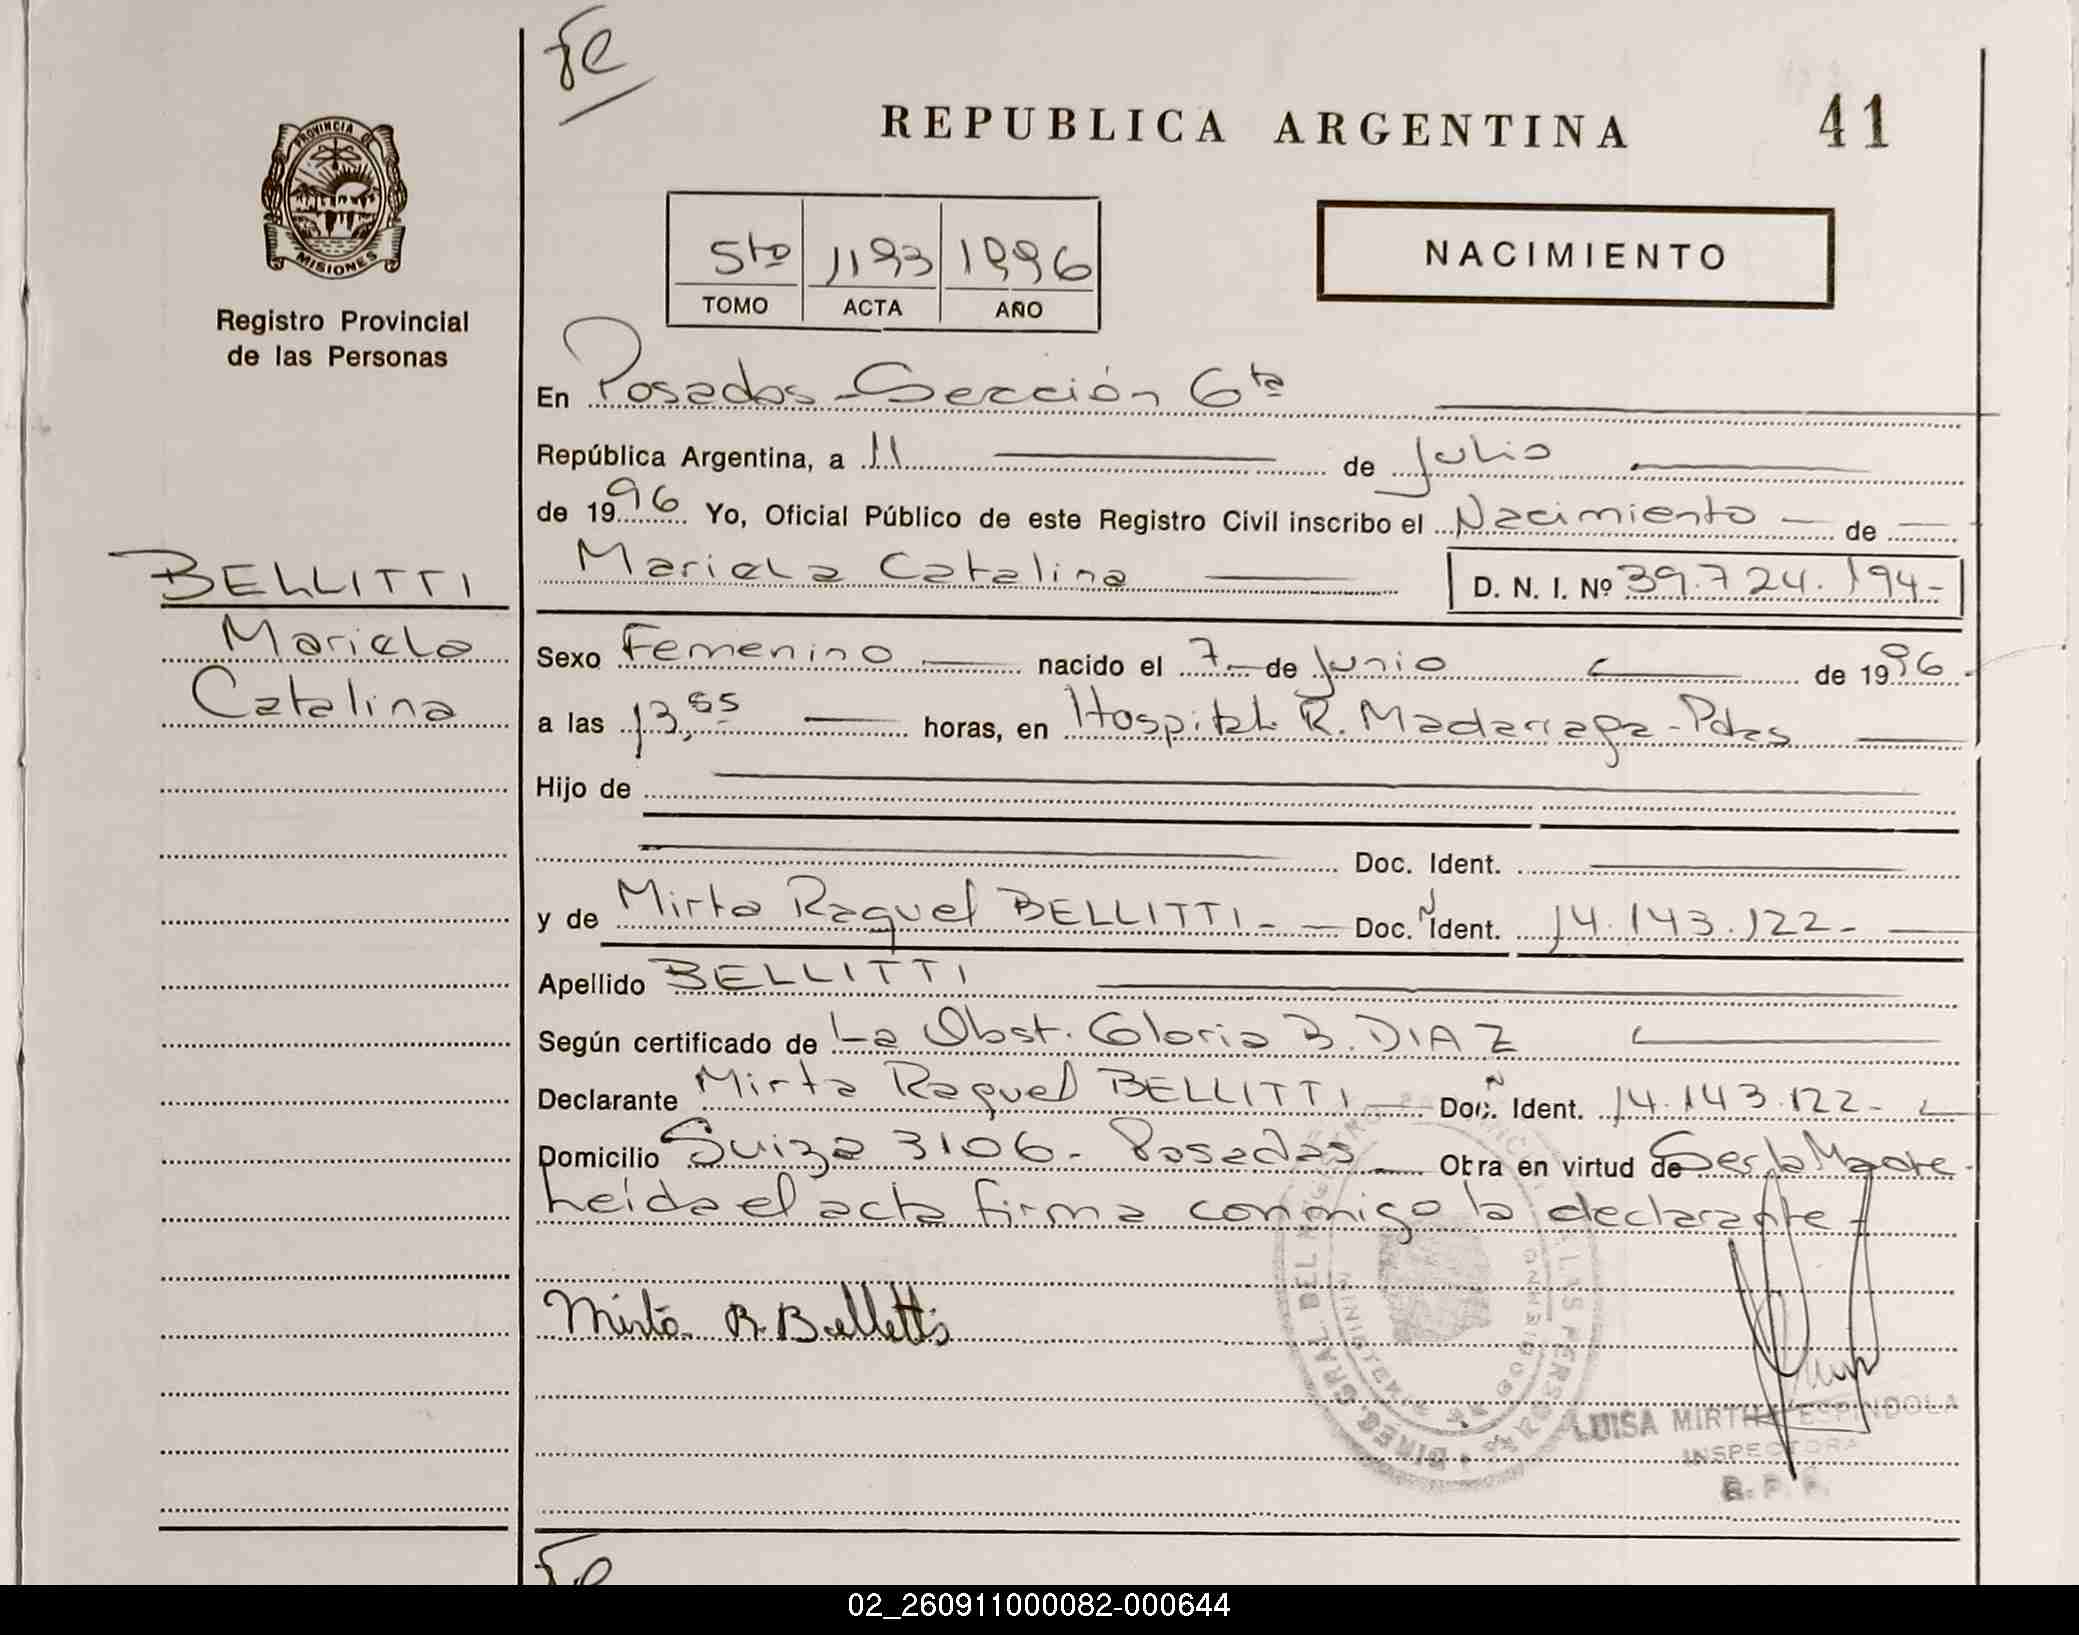 fe
REPUBLICA ARGENTINA
41
PROVINCIA DE
MISIONES
Registro Provincial
de las Personas
5to 1193 1996
TOMO ACTA AÑO
NACIMIENTO
En Posadas - Sección 6ta
República Argentina, a 11 de Julio
de 1996 Yo, Oficial Público de este Registro Civil inscribo el Nacimiento - de
Mariela Catalina D. N. I. Nº 39.724.194-
BELLITTI
Mariela
Catalina
Sexo Femenino nacido el 7 de Junio de 1996
a las 13,55 horas, en Hospital R. Madariaga - Pdas
Hijo de
Doc. Ident.
y de Mirta Raquel BELLITTI - Doc. Ident. 14.143.122-
Apellido BELLITTI
Según certificado de La Obst. Gloria B. DIAZ
Declarante Mirta Raquel BELLITTI Doc. Ident. 14.143.122-
Domicilio Suiza 3106 - Posadas Obra en virtud de Ser la Madre -
Leída el acta firma conmigo la declarante -
Mirta R. Bellitti
LUISA MIRTHA ESPINDOLA
INSPECTORA
R. P. P.
02_260911000082-000644